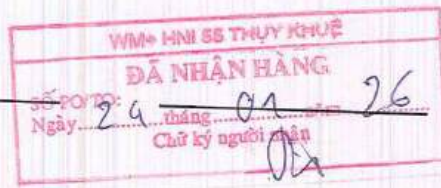 WM+ HNI 88 THỤY KHUÊ
ĐÃ NHẬN HÀNG
SỐ PO/TO:
Ngày 24 tháng 01 năm 26
Chữ ký người nhận